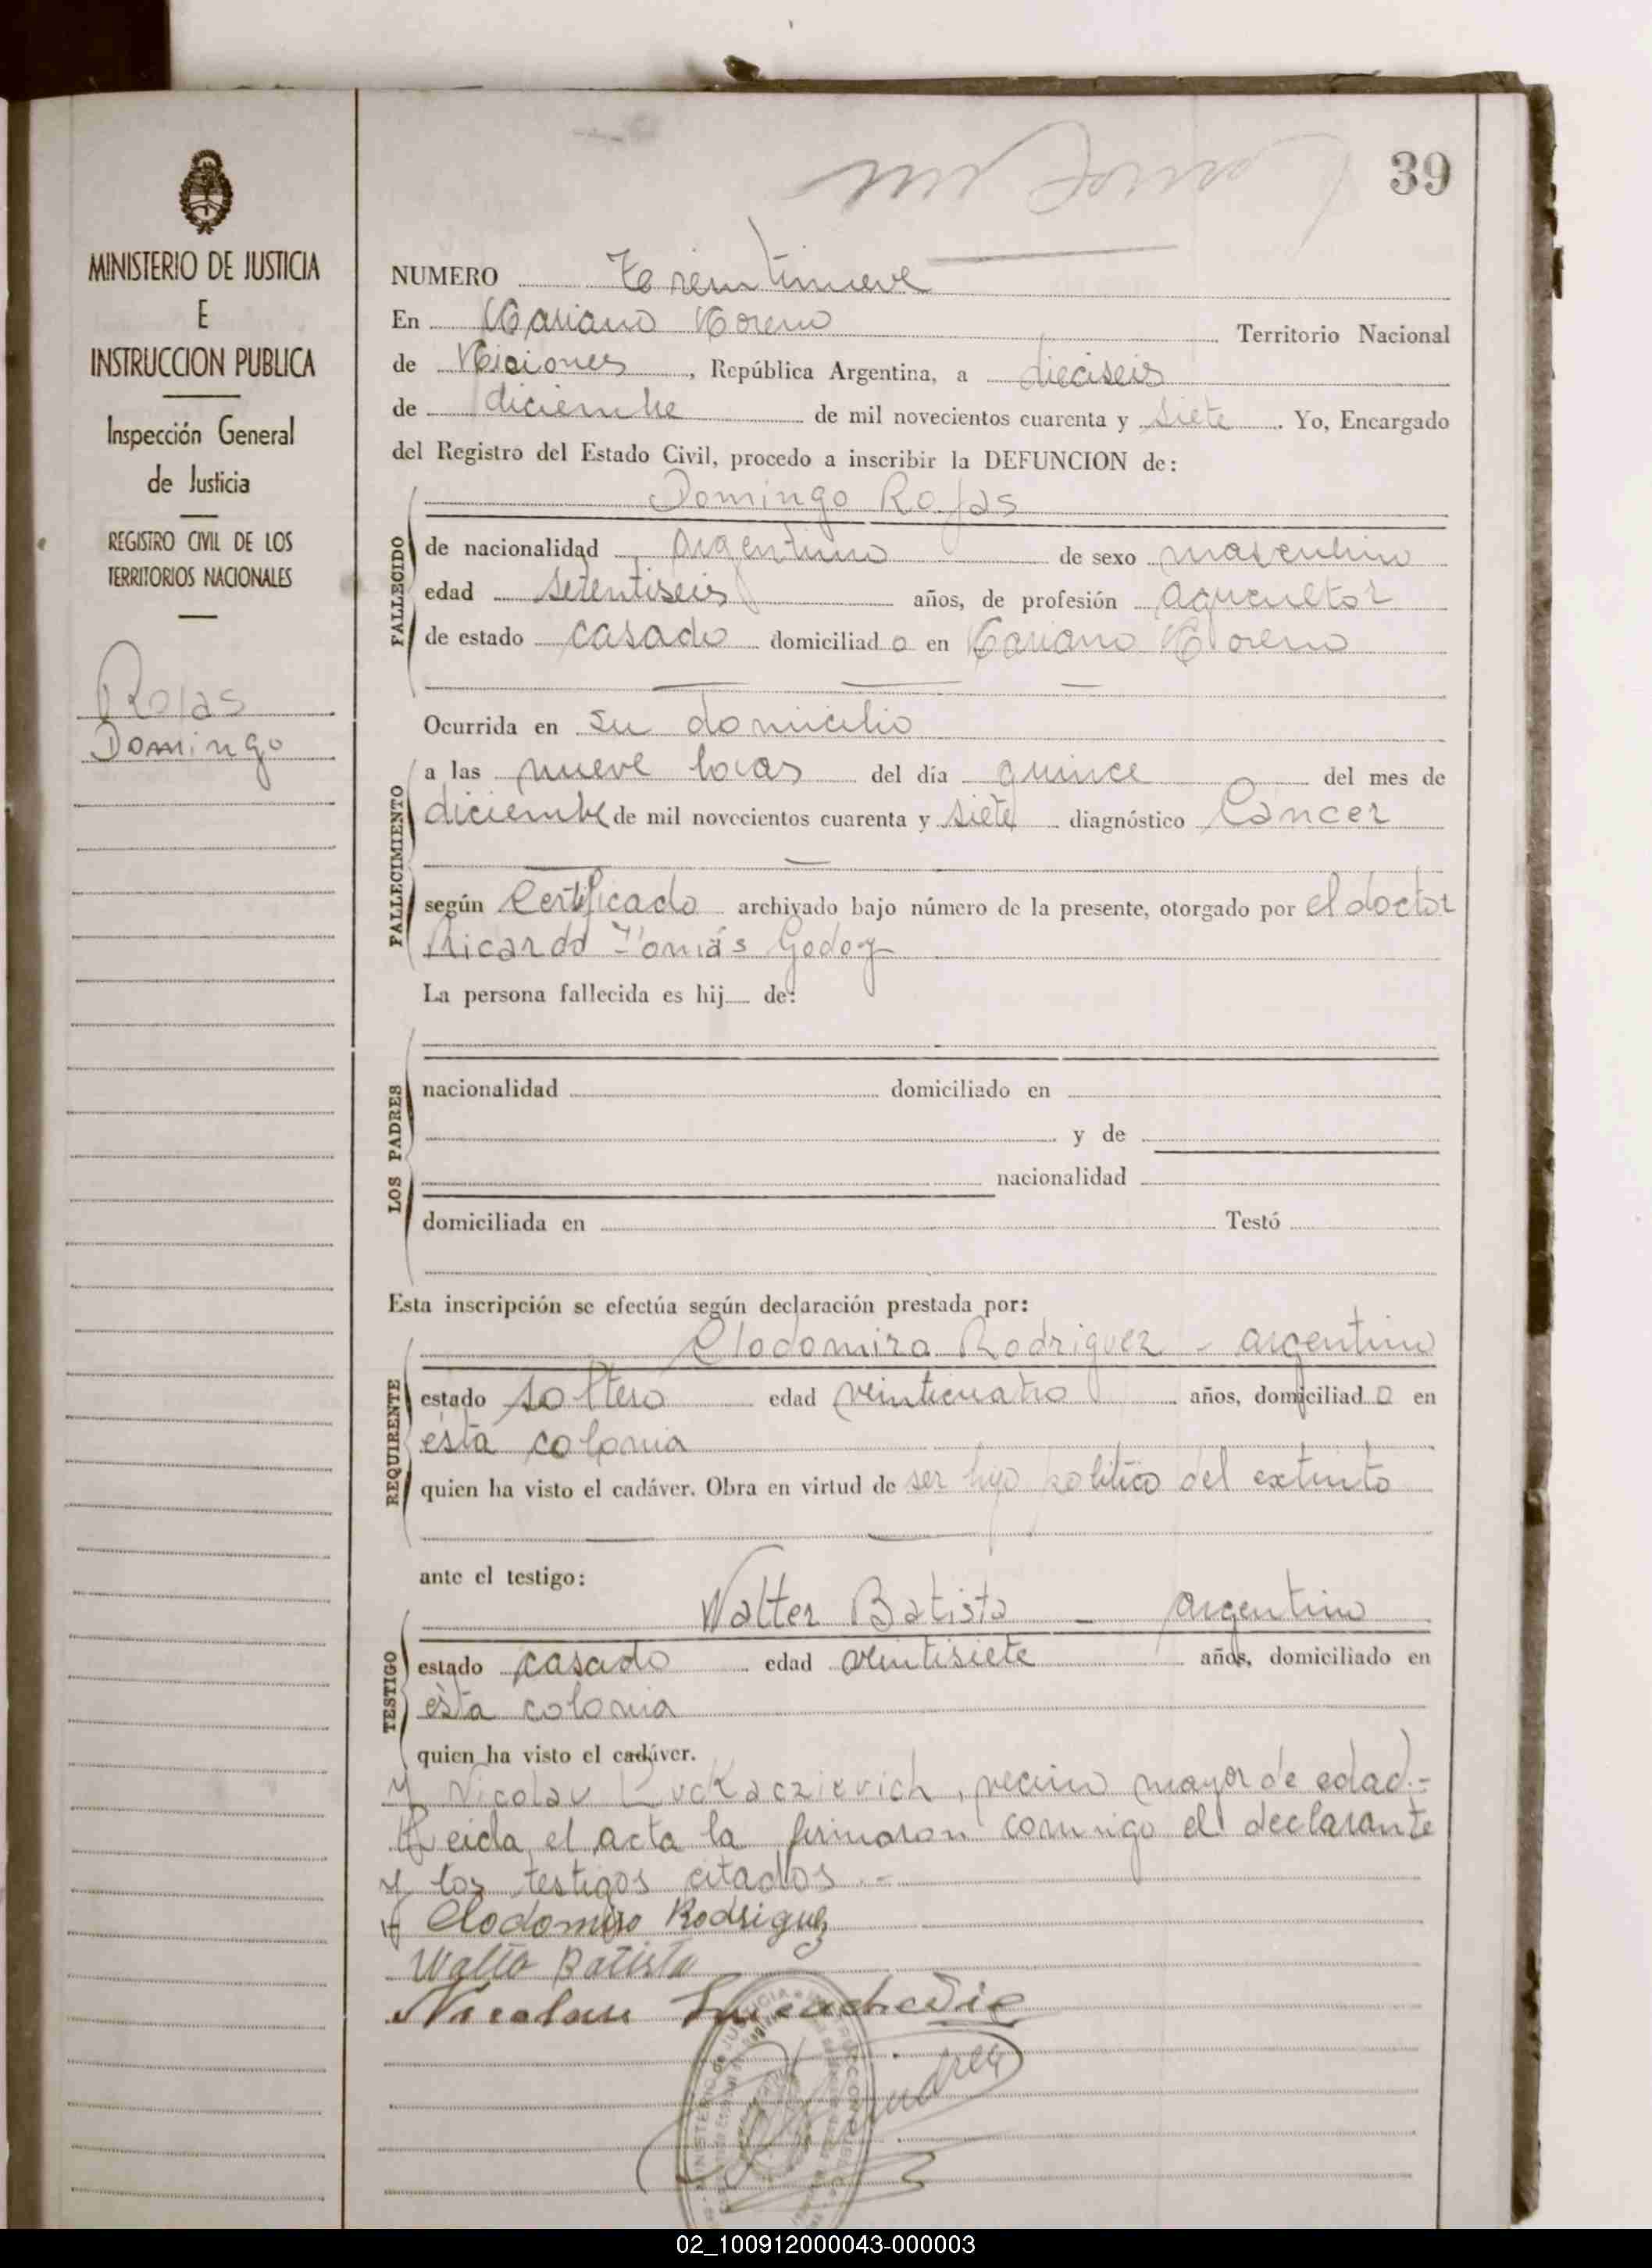 39
MINISTERIO DE JUSTICIA
E
INSTRUCCION PUBLICA
Inspección General
de Justicia
REGISTRO CIVIL DE LOS
TERRITORIOS NACIONALES
Rojas
Domingo
NUMERO Treintinueve
En Mariano Moreno Territorio Nacional
de Misiones, República Argentina, a dieciseis
de diciembre de mil novecientos cuarenta y siete. Yo, Encargado
del Registro del Estado Civil, procedo a inscribir la DEFUNCION de:
Domingo Rojas
FALLECIDO
de nacionalidad argentino de sexo masculino
edad setentiseis años, de profesión agricultor
de estado casado domiciliado en Mariano Moreno
Ocurrida en su domicilio
FALLECIMIENTO
a las nueve horas del día quince del mes de
diciembre de mil novecientos cuarenta y siete diagnóstico Cancer
según Certificado archivado bajo número de la presente, otorgado por el doctor
Ricardo Tomás Godoy
La persona fallecida es hij de:
LOS PADRES
nacionalidad domiciliado en
y de
nacionalidad
domiciliada en Testó
Esta inscripción se efectúa según declaración prestada por:
Clodomiro Rodriguez - argentino
REQUIRENTE
estado soltero edad veinticuatro años, domiciliado en
ésta colonia
quien ha visto el cadáver. Obra en virtud de ser hijo politico del extinto
ante el testigo:
Walter Batista - argentino
TESTIGO
estado casado edad veintisiete años, domiciliado en
ésta colonia
quien ha visto el cadáver.
y Nicolau, vecino mayor de edad.-
Leida el acta la firmaron conmigo el declarante
y los testigos citados.-
Clodomiro Rodriguez
Walter Batista
Nicolau
02_100912000043-000003